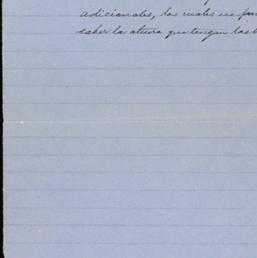 adicionales, los cuales no pue
saber la altura que tengan las b